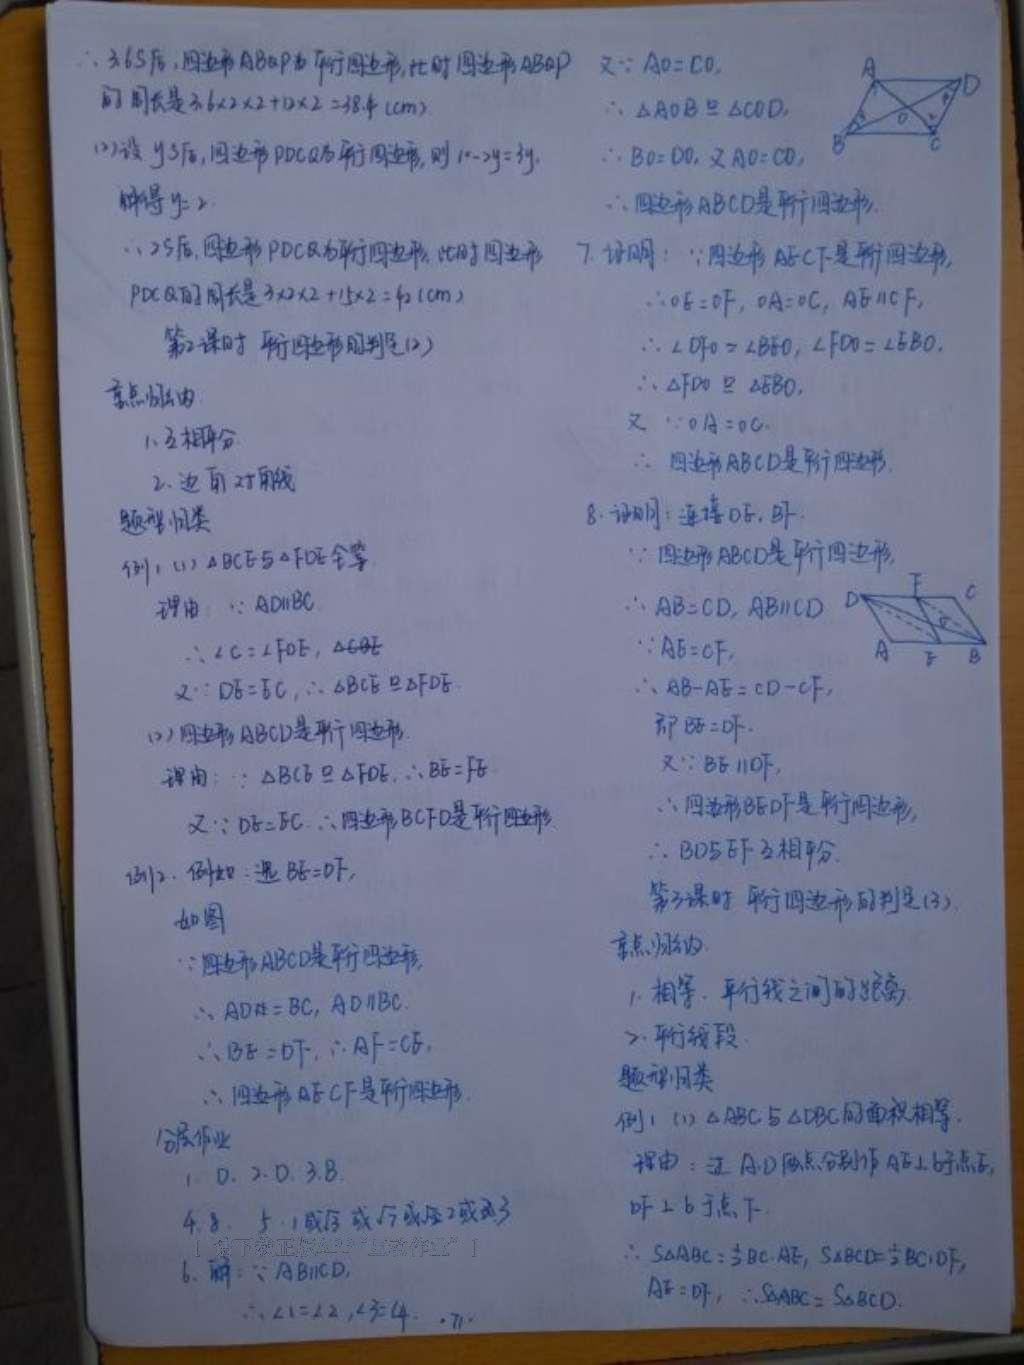 ∴ 3.6S后,四边形ABQP为平行四边形,此时四边形ABQP
的周长是3.6×2×2+12×2=38.4(cm)
(2)设yS后,四边形PDCQ为平行四边形,则10-2y=3y.
解得y=2.
∴2S后,四边形PDCQ为平行四边形,此时四边形
PDCQ的周长是3×2×2+15×2=42(cm)
第2课时 平行四边形的判定(2)
要点归纳
1.互相平分
2.边 角 对角线
题型归类
例1.(1)△BCE与△FDE全等.
理由:∵AD∥BC
∴∠C=∠FDE,
又∵DE=EC,∴△BCE≌△FDE.
(2)四边形ABCD是平行四边形.
理由:∵△BCE≌△FDE.∴BE=FE
又∵DE=EC.∴四边形BCFD是平行四边形
例2.例如:选BE=DF,
如图
∵四边形ABCD是平行四边形,
∴AD=BC,AD∥BC.
∴BE=DF,∴AF=CE,
∴四边形AECF是平行四边形.
分层作业
1.D. 2.D. 3.B.
4.8. 5.
6.解:∵AB∥CD,
∴∠1=∠2,∠3=∠4.
又∵AO=CO,
∴△AOB≌△COD,
∴BO=DO,又AO=CO,
∴四边形ABCD是平行四边形.
A
D
O
B
C
7.证明:∵四边形AECF是平行四边形,
∴OE=OF,OA=OC,AE∥CF,
∴∠DFO=∠BEO,∠FDO=∠EBO,
∴△FDO≌△EBO,
又∵OA=OC.
∴四边形ABCD是平行四边形.
8.证明:连接DE,BF.
∵四边形ABCD是平行四边形,
∴AB=CD,AB∥CD
∵AE=CF,
∴AB-AE=CD-CF,
即BE=DF.
又∵BE∥DF,
∴四边形BEDF是平行四边形,
∴BD与EF互相平分.
D
F
C
A
E
B
第3课时 平行四边形的判定(3).
要点归纳.
1.相等.平行线之间的距离.
2.平行线段.
题型归类
例1.(1)△ABC与△DBC的面积相等.
理由:过A.D两点分别作AE⊥b于点E,
DF⊥b于点F.
∴S△ABC=½BC·AE,S△BCD=½BC·DF,
AE=DF,∴S△ABC=S△BCD.